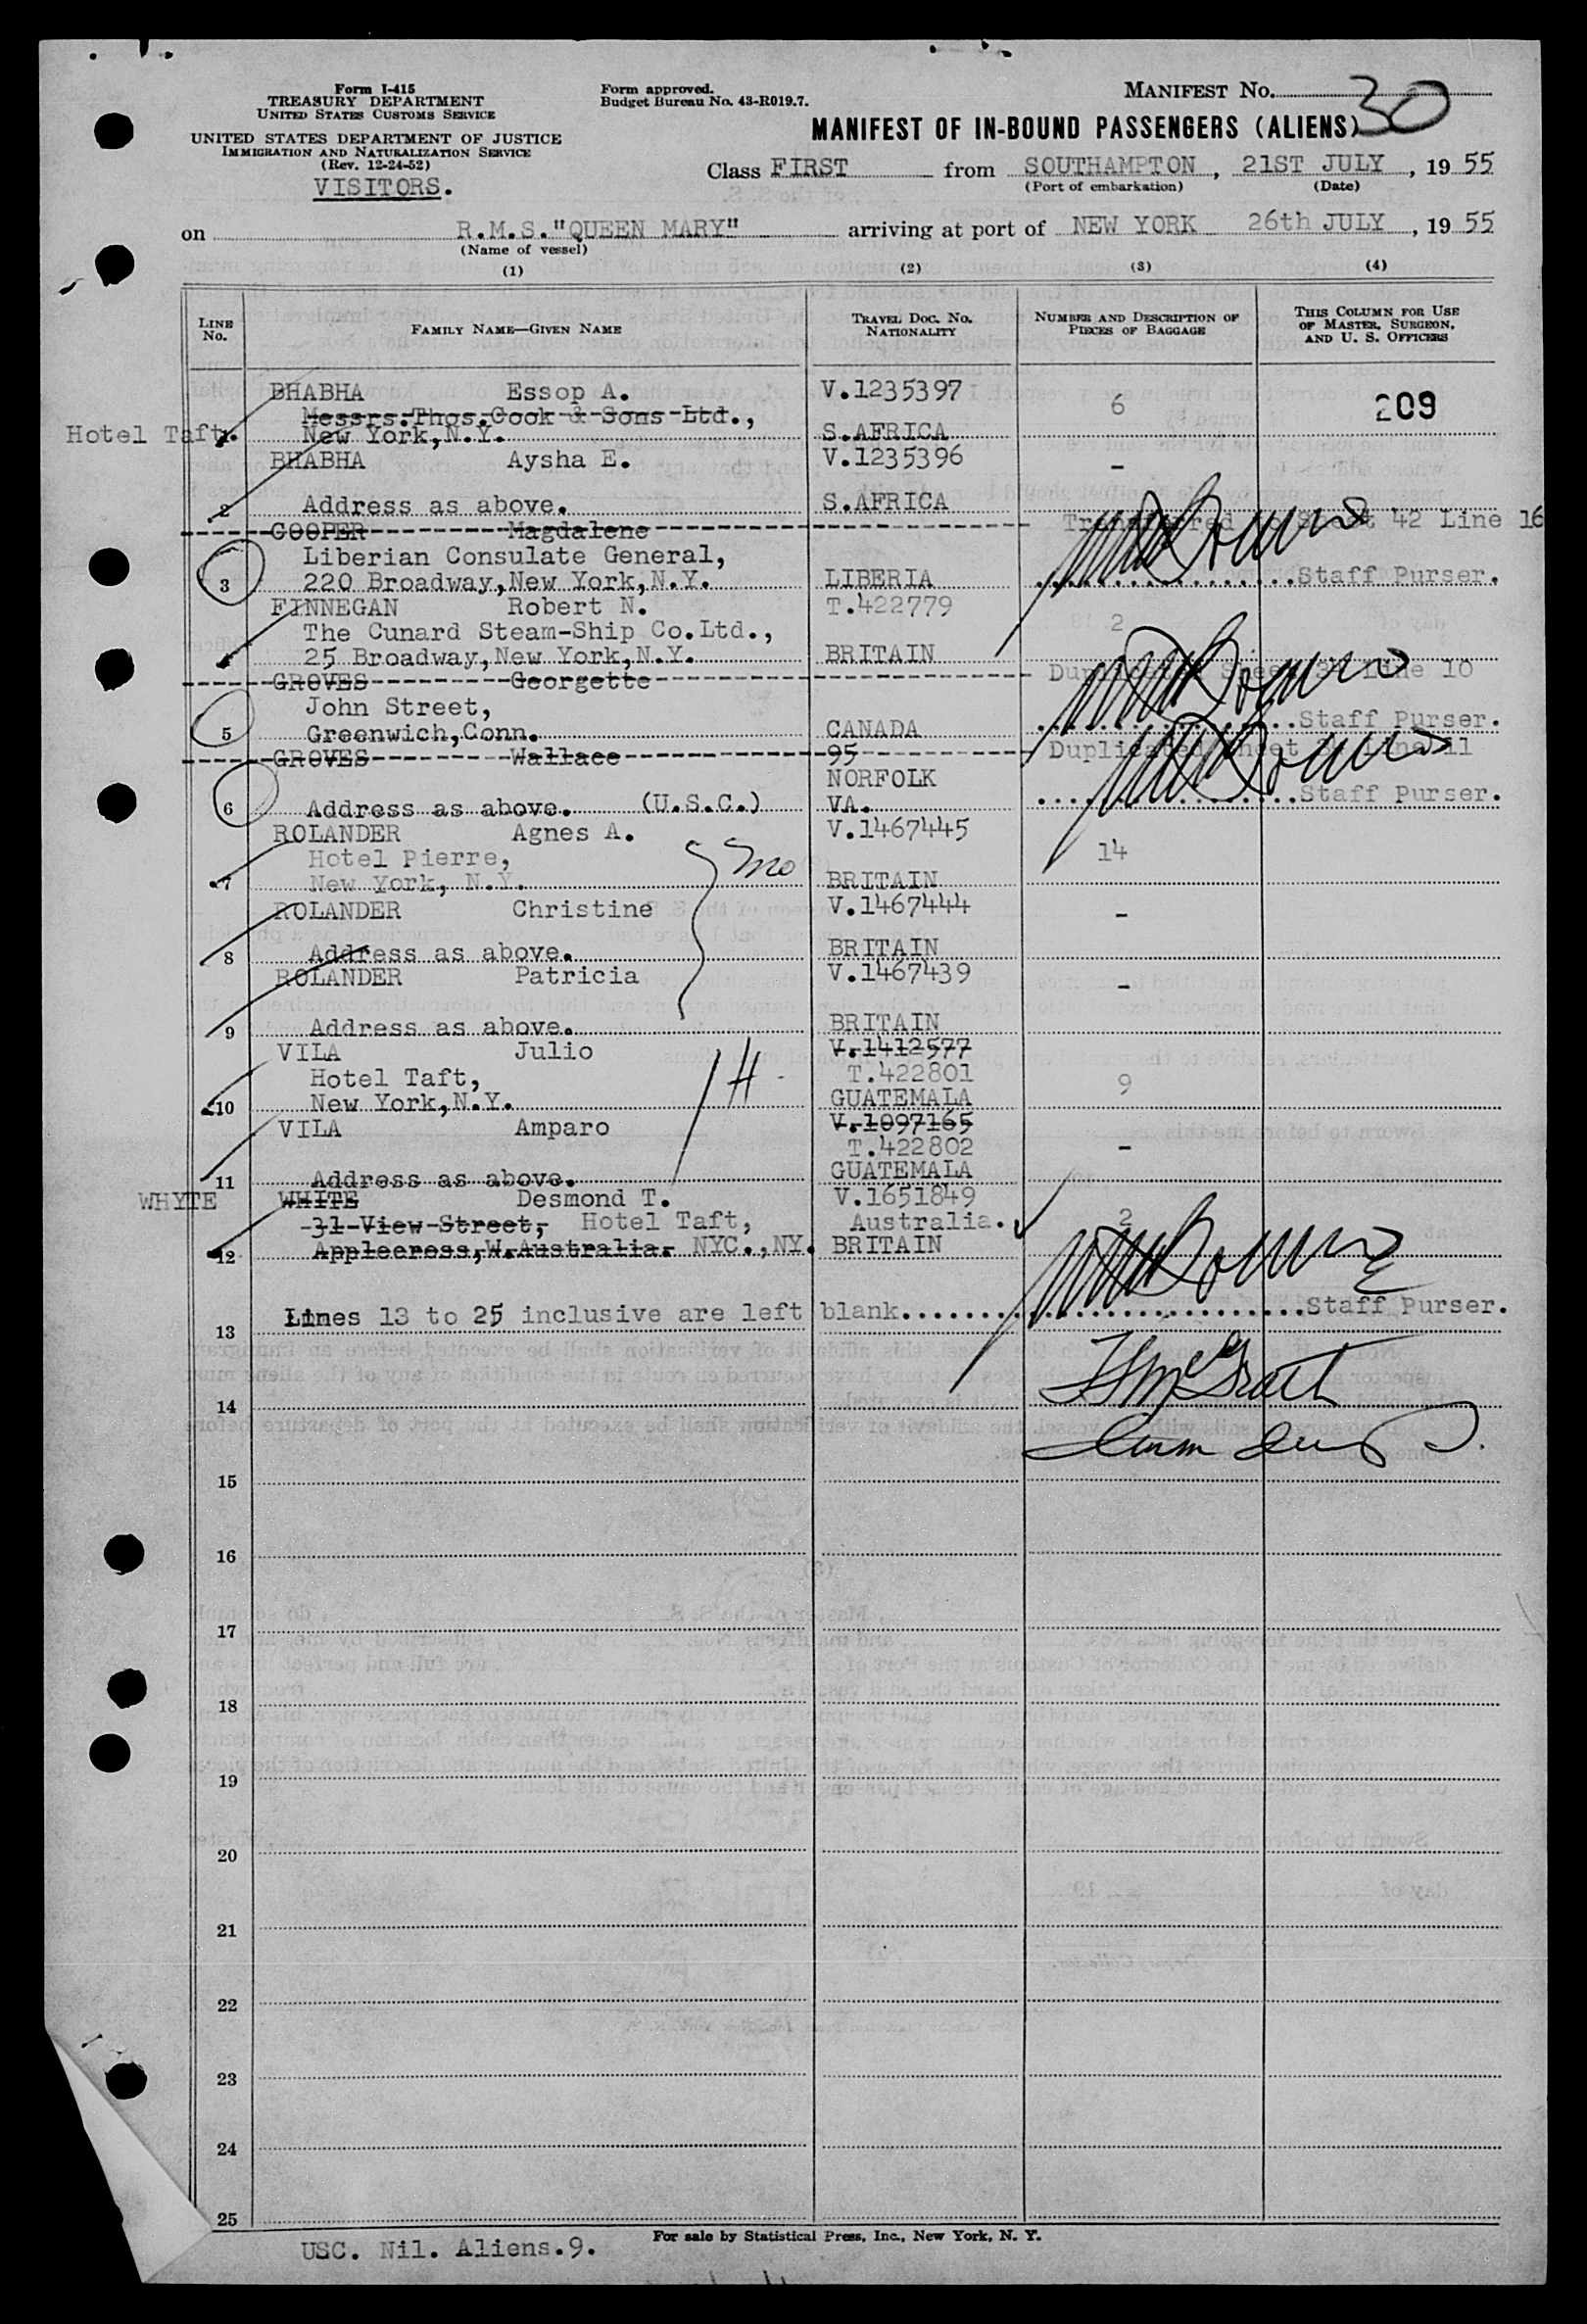 Form I-415
TREASURY DEPARTMENT
UNITED STATES CUSTOMS SERVICE
UNITED STATES DEPARTMENT OF JUSTICE
IMMIGRATION AND NATURALIZATION SERVICE
(Rev. 12-24-52)
VISITORS.
Form approved.
Budget Bureau No. 43-R019.7.
MANIFEST No. 30
MANIFEST OF IN-BOUND PASSENGERS (ALIENS)
Class FIRST from SOUTHAMPTON, 21ST JULY, 19 55
(Port of embarkation) (Date)
on R.M.S."QUEEN MARY" arriving at port of NEW YORK 26th JULY, 19 55
(Name of vessel)
(1) (2) (3) (4)
LINE No. FAMILY NAME—GIVEN NAME TRAVEL DOC. No. NATIONALITY NUMBER AND DESCRIPTION OF PIECES OF BAGGAGE THIS COLUMN FOR USE OF MASTER, SURGEON, AND U. S. OFFICERS
BHABHA Essop A. V.1235397
Messrs.Thos.Cook & Sons Ltd., 6 209
Hotel Taft. 1 New York,N.Y. S.AFRICA
BHABHA Aysha E. V.1235396 -
2 Address as above. S.AFRICA
COOPER Magdalene Transferred to Sheet 42 Line 16
Liberian Consulate General,
3 220 Broadway,New York,N.Y. LIBERIA Staff Purser.
FINNEGAN Robert N. T.422779
The Cunard Steam-Ship Co.Ltd., 2
4 25 Broadway,New York,N.Y. BRITAIN
GROVES Georgette Duplicated Sheet Line 10
John Street,
5 Greenwich,Conn. CANADA Staff Purser.
GROVES Wallace 95 Duplicated Sheet Line 11
NORFOLK
6 Address as above. (U.S.C.) VA. Staff Purser.
ROLANDER Agnes A. V.1467445
Hotel Pierre, 14
7 New York, N.Y. BRITAIN
ROLANDER Christine V.1467444 -
8 Address as above. BRITAIN
ROLANDER Patricia V.1467439 -
9 Address as above. BRITAIN
VILA Julio V.1412577
Hotel Taft, T.422801 9
10 New York,N.Y. GUATEMALA
VILA Amparo V.1097165
T.422802 -
11 Address as above. GUATEMALA
WHYTE WHITE Desmond T. V.1651849
31 View Street, Hotel Taft, Australia. 2
12 Applecress,W.Australia. NYC.,NY. BRITAIN
Lines 13 to 25 inclusive are left blank Staff Purser.
13
14
15
16
17
18
19
20
21
22
23
24
25
For sale by Statistical Press, Inc., New York, N. Y.
USC. Nil. Aliens.9.